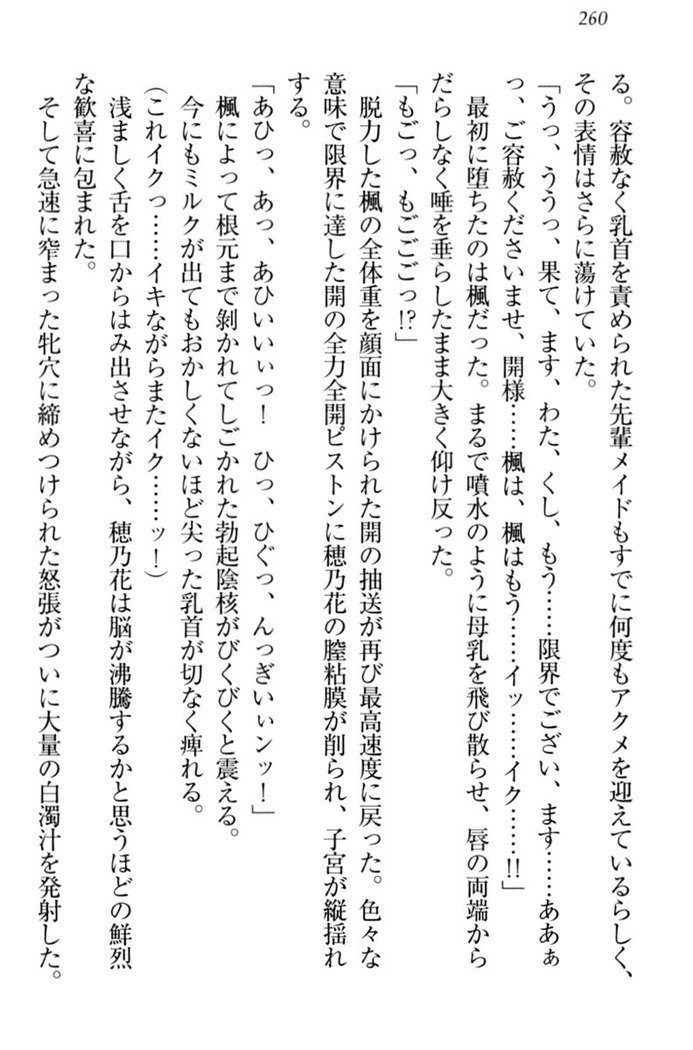 260
る。容赦なく乳首を責められた先輩メイドもすでに何度もアクメを迎えているらしく、
その表情はさらに蕩けていた。
「うっ、ううっ、果て、ます、わた、くし、もう……限界でござい、ます……ああぁ
っ、ご容赦くださいませ、開様……楓は、楓はもう……イッ……イク……!!」
最初に堕ちたのは楓だった。まるで噴水のように母乳を飛び散らせ、唇の両端から
だらしなく唾を垂らしたまま大きく仰け反った。
「もごっ、もごごごっ!?」
脱力した楓の全体重を顔面にかけられた開の抽送が再び最高速度に戻った。色々な
意味で限界に達した開の全力全開ピストンに穂乃花の膣粘膜が削られ、子宮が縦揺れ
する。
「あひっ、あっ、あひいいぃっ！　ひっ、ひぐっ、んっぎいぃンッ！」
楓によって根元まで剥かれてしごかれた勃起陰核がびくびくと震える。
今にもミルクが出てもおかしくないほど尖った乳首が切なく痺れる。
（これイクっ……イキながらまたイク……ッ！）
浅ましく舌を口からはみ出させながら、穂乃花は脳が沸騰するかと思うほどの鮮烈
な歓喜に包まれた。
そして急速に窄まった牝穴に締めつけられた怒張がついに大量の白濁汁を発射した。